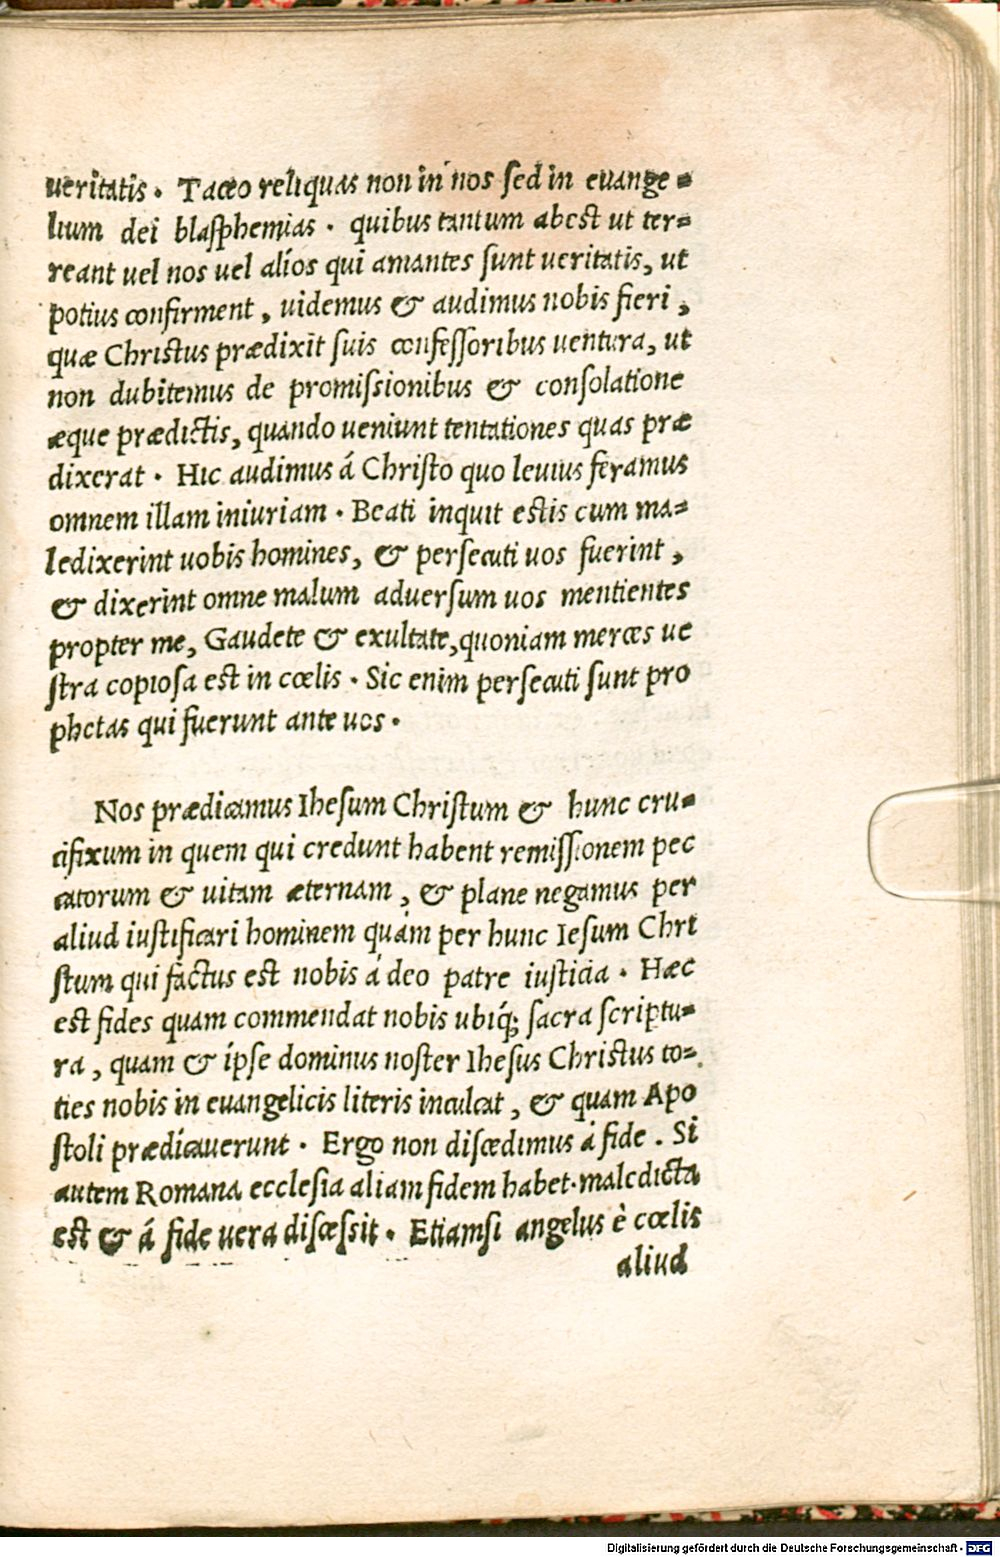 ueritatis. Taceo reliquas non in nos sed in euange=
lium dei blasphemias. quibus tantum abest ut ter=
reant uel nos uel alios qui amantes sunt ueritatis, ut
potius confirment, uidemus & audimus nobis fieri,
quæ Christus prædixit suis confessoribus uentura, ut
non dubitemus de promissionibus & consolatione
æque prædictis, quando ueniunt tentationes quas præ
dixerat. Hic audimus á Christo quo leuius feramus
omnem illam iniuriam. Beati inquit estis cum ma=
ledixerint uobis homines, & persecuti uos fuerint,
& dixerint omne malum aduersum uos mentientes
propter me, Gaudete & exultate, quoniam merces ue
stra copiosa est in cœlis. Sic enim persecuti sunt pro
phetas qui fuerunt ante uos.
Nos prædicamus Ihesum Christum & hunc cru=
cifixum in quem qui credunt habent remissionem pec
catorum & uitam æternam, & plane negamus per
aliud iustificari hominem quám per hunc Iesum Chri
stum qui factus est nobis á deo patre iusticia. Hæc
est fides quam commendat nobis ubiq́; sacra scriptu=
ra, quam & ipse dominus noster Ihesus Christus to=
ties nobis in euangelicis literis inculcat, & quam Apo
stoli prædicauerunt. Ergo non discedimus á fide. Si
autem Romana ecclesia aliam fidem habet. maledicta
est & á fide uera discessit. Etiamsi angelus è cœlis
aliud
Digitalisierung gefördert durch die Deutsche Forschungsgemeinschaft - DFG